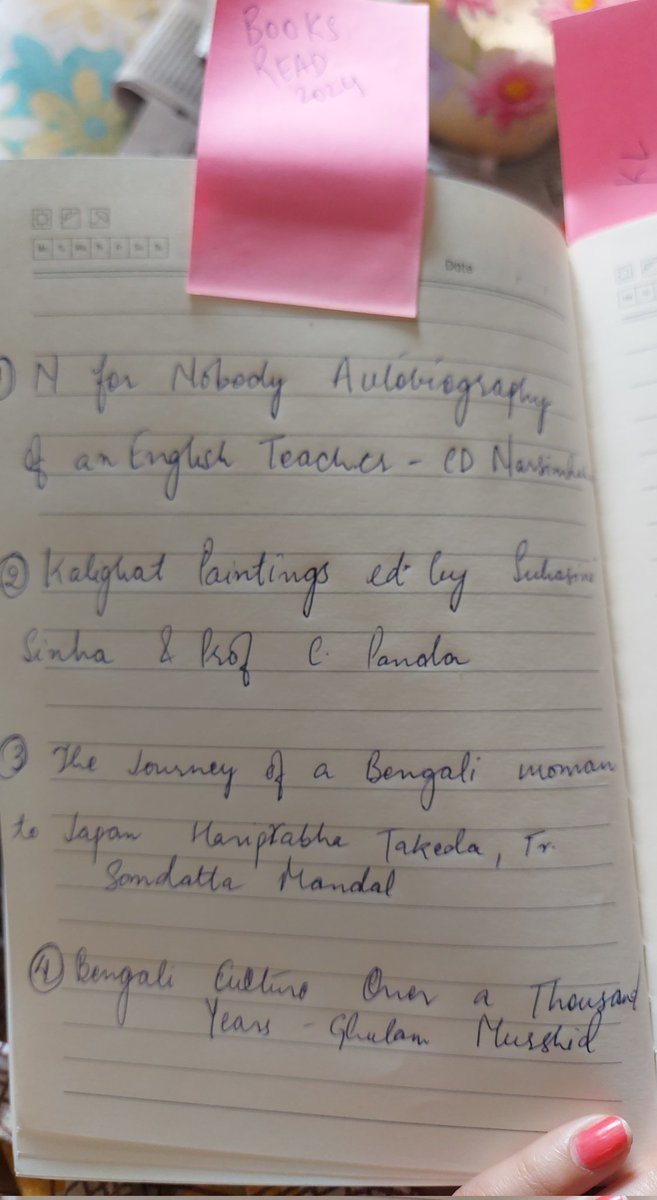 BOOKS
READ
2024
KL
Date
1) N for Nobody Autobiography
of an English Teacher - CD
② Kalighat Paintings ed. by Suhasini
Sinha & Prof C. Panda
③ The Journey of a Bengali woman
to Japan Hariprabha Takeda, Tr.
Somdatta Mandal
④ Bengali Culture Over a Thousand
Years - Ghulam Murshid